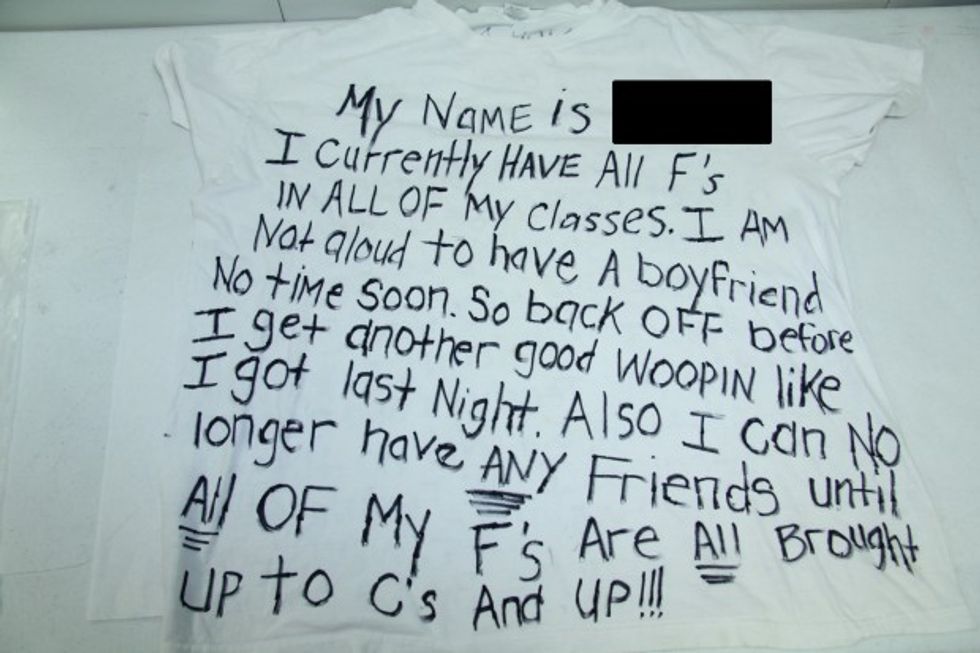 My NAME is
I Currently HAVE All F's
IN ALL OF My Classes. I AM
Not aloud to have A boyfriend
No time soon. So back OFF before
I get another good WOOPIN like
I got last Night. Also I can NO
longer have ANY Friends until
All OF My F's Are All Brought
UP to C's And UP!!!